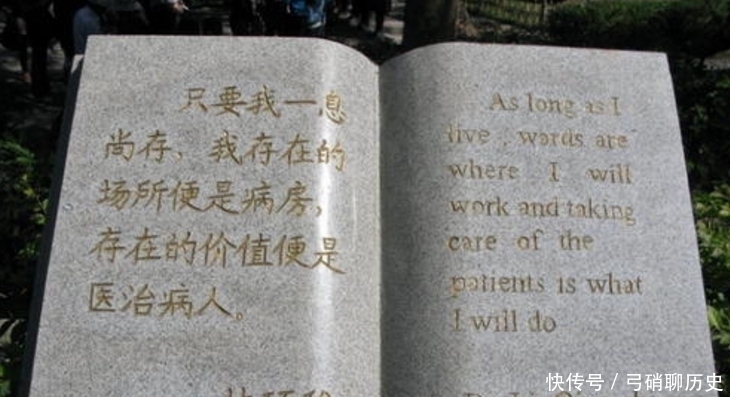 只要我一息
尚存、我存在的
场所便是病房，
存在的价值便是
医治病人。
As long as I
live , words are
where I will
work and taking
care of the
patients is what
I will do
快传号 / 弓硝聊历史